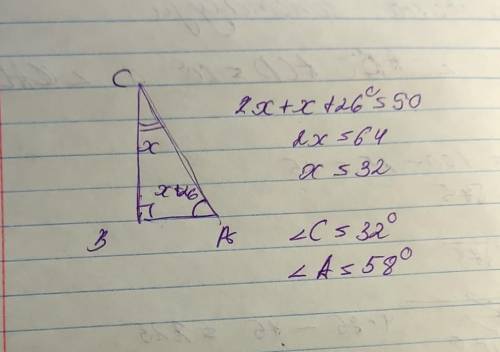 C
x
x+26
B
A
2x+x+26°=90
2x=64
x=32
∠C=32°
∠A=58°